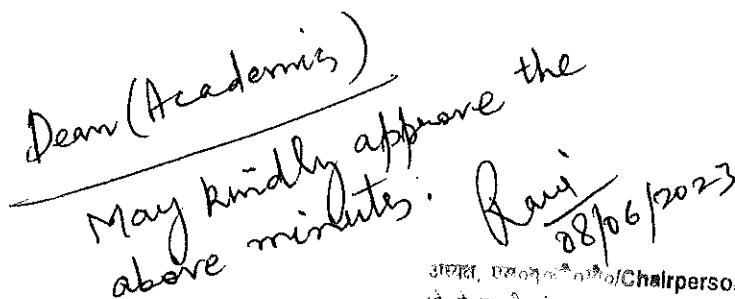 Dean (Academics)
May kindly approve the
above minutes.
Ravi
08/06/2023
अध्यक्ष, /Chairperso